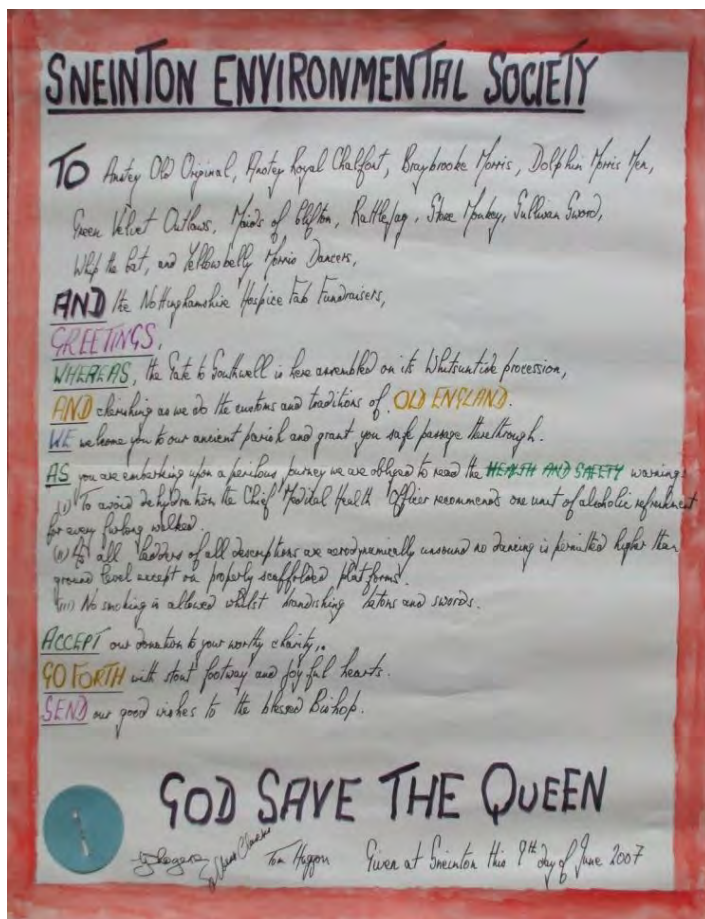 SNEINTON ENVIRONMENTAL SOCIETY
TO Anstey Old Original, Anstey Royal Chalfont, Braybrooke Morris, Dolphin Morris Men,
Green Velvet Outlaws, Maids of Clifton, Rattlejag, Stone Monkey, Sullivan Sword,
Whip the Cat, and Yellowbelly Morris Dancers,
AND the Nottinghamshire Hospice Fab Fundraisers,
GREETINGS,
WHEREAS, the Gate to Southwell is here assembled on its Whitsuntide procession,
AND cherishing as we do the customs and traditions of OLD ENGLAND.
WE welcome you to our ancient parish and grant you safe passage therethrough.
AS you are embarking upon a perilous journey we are obliged to read the HEALTH AND SAFETY warning:
(i) To avoid dehydration the Chief Medical Health Officer recommends one unit of alcoholic refreshment
for every furlong walked.
(ii) As all ladders of all descriptions are aerodynamically unsound no dancing is permitted higher than
ground level except on properly scaffolded platforms.
(iii) No smoking is allowed whilst brandishing batons and swords.
ACCEPT our donation to your worthy charity,.
GO FORTH with stout footway and joyful hearts.
SEND our good wishes to the blessed Bishop.
GOD SAVE THE QUEEN
Tom Huggon Given at Sneinton this 9th day of June 2007